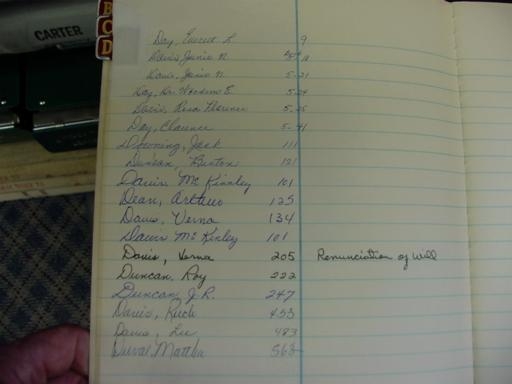 CARTER
B
C
D
Day, Everett L 9
Davis, Janie N. 18
Davis, Janie N. 5-21
Day, Dr. Woodrow E. 5-24
Davis, Rosa Florence 5-25
Day, Clarence 5-41
Downing, Jack 111
Duncan, Burton 121
Davis McKinley 101
Dean, Arthur 125
Davis, Verna 134
Davis McKinley 101
Davis, Verna 205 Renunciation of Will
Duncan, Roy 222
Duncan, J.R. 247
Davis, Ruth 453
Davis, Lee 483
Duval, Martha 563